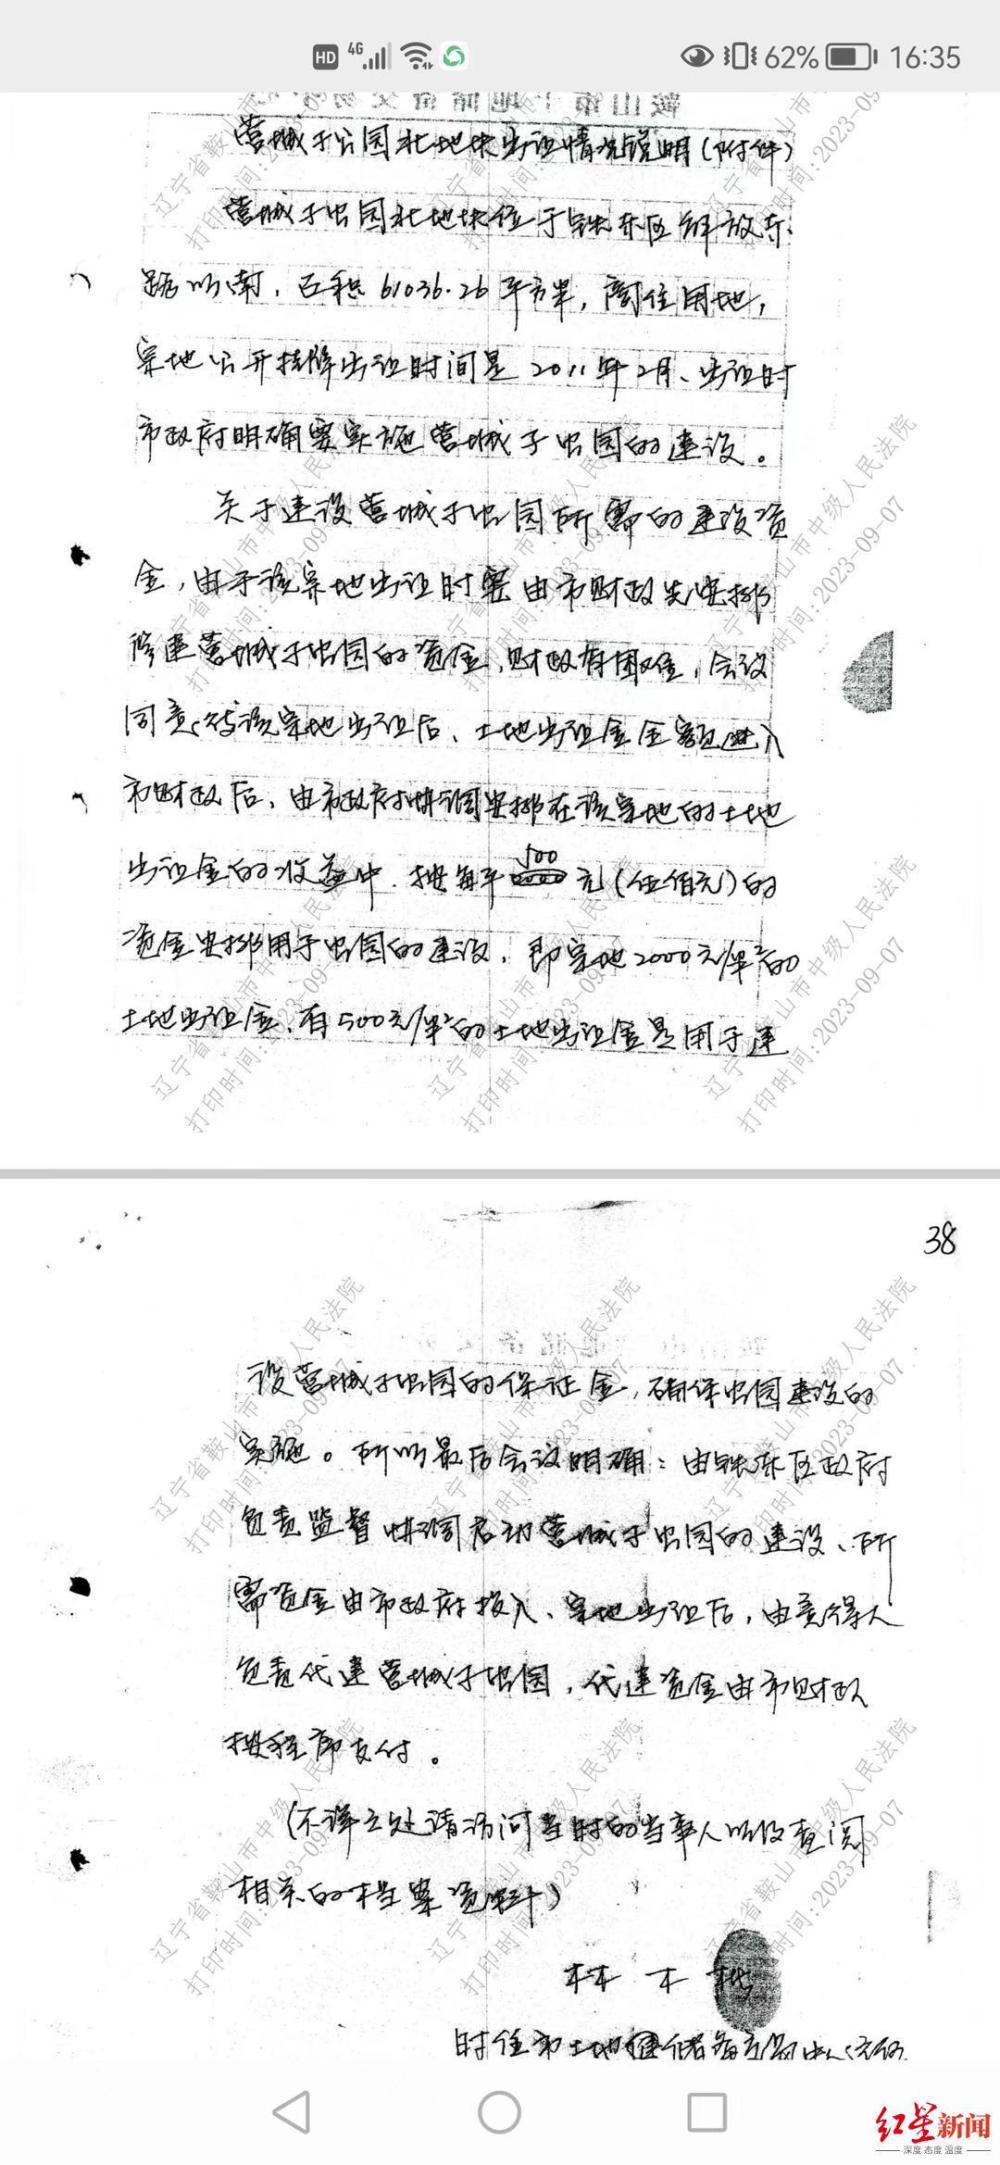 HD 4G 62% 16:35
鞍山市土地储备交易
营城子公园北地块出让情况说明(附件)
营城子公园北地块位于铁东区解放东
路以南，面积61036.26平方米，商住用地，
宗地公开挂牌出让时间是2011年2月、出让时
市政府明确要实施营城子公园的建设。
关于建设营城子公园所需的建设资
金，由于该宗地出让时要由市财政先安排
修建营城子公园的资金，财政有困难，会议
同意：待该宗地出让后、土地出让金全额进入
市财政后，由市政府协调安排在该宗地的土地
出让金的收益中．按每平500元(伍佰元)的
资金安排用于公园的建设，即宗地2000元/平米的
土地出让金、有500元/平米的土地出让金是用于建
38
设营城子公园的保证金，确保公园建设的
实施。所以最后会议明确：由铁东区政府
负责监督协调启动营城子公园的建设、所
需资金由市政府投入、宗地出让后，由竞得人
负责代建营城子公园，代建资金由市财政
按程序支付。
(不详之处请访问当时的当事人以及查阅
相关的档案资料)
林木
时任市土地储备交易中心主任
辽宁省鞍山市中级人民法院
打印时间:2023-09-07
红星新闻
深度 态度 温度